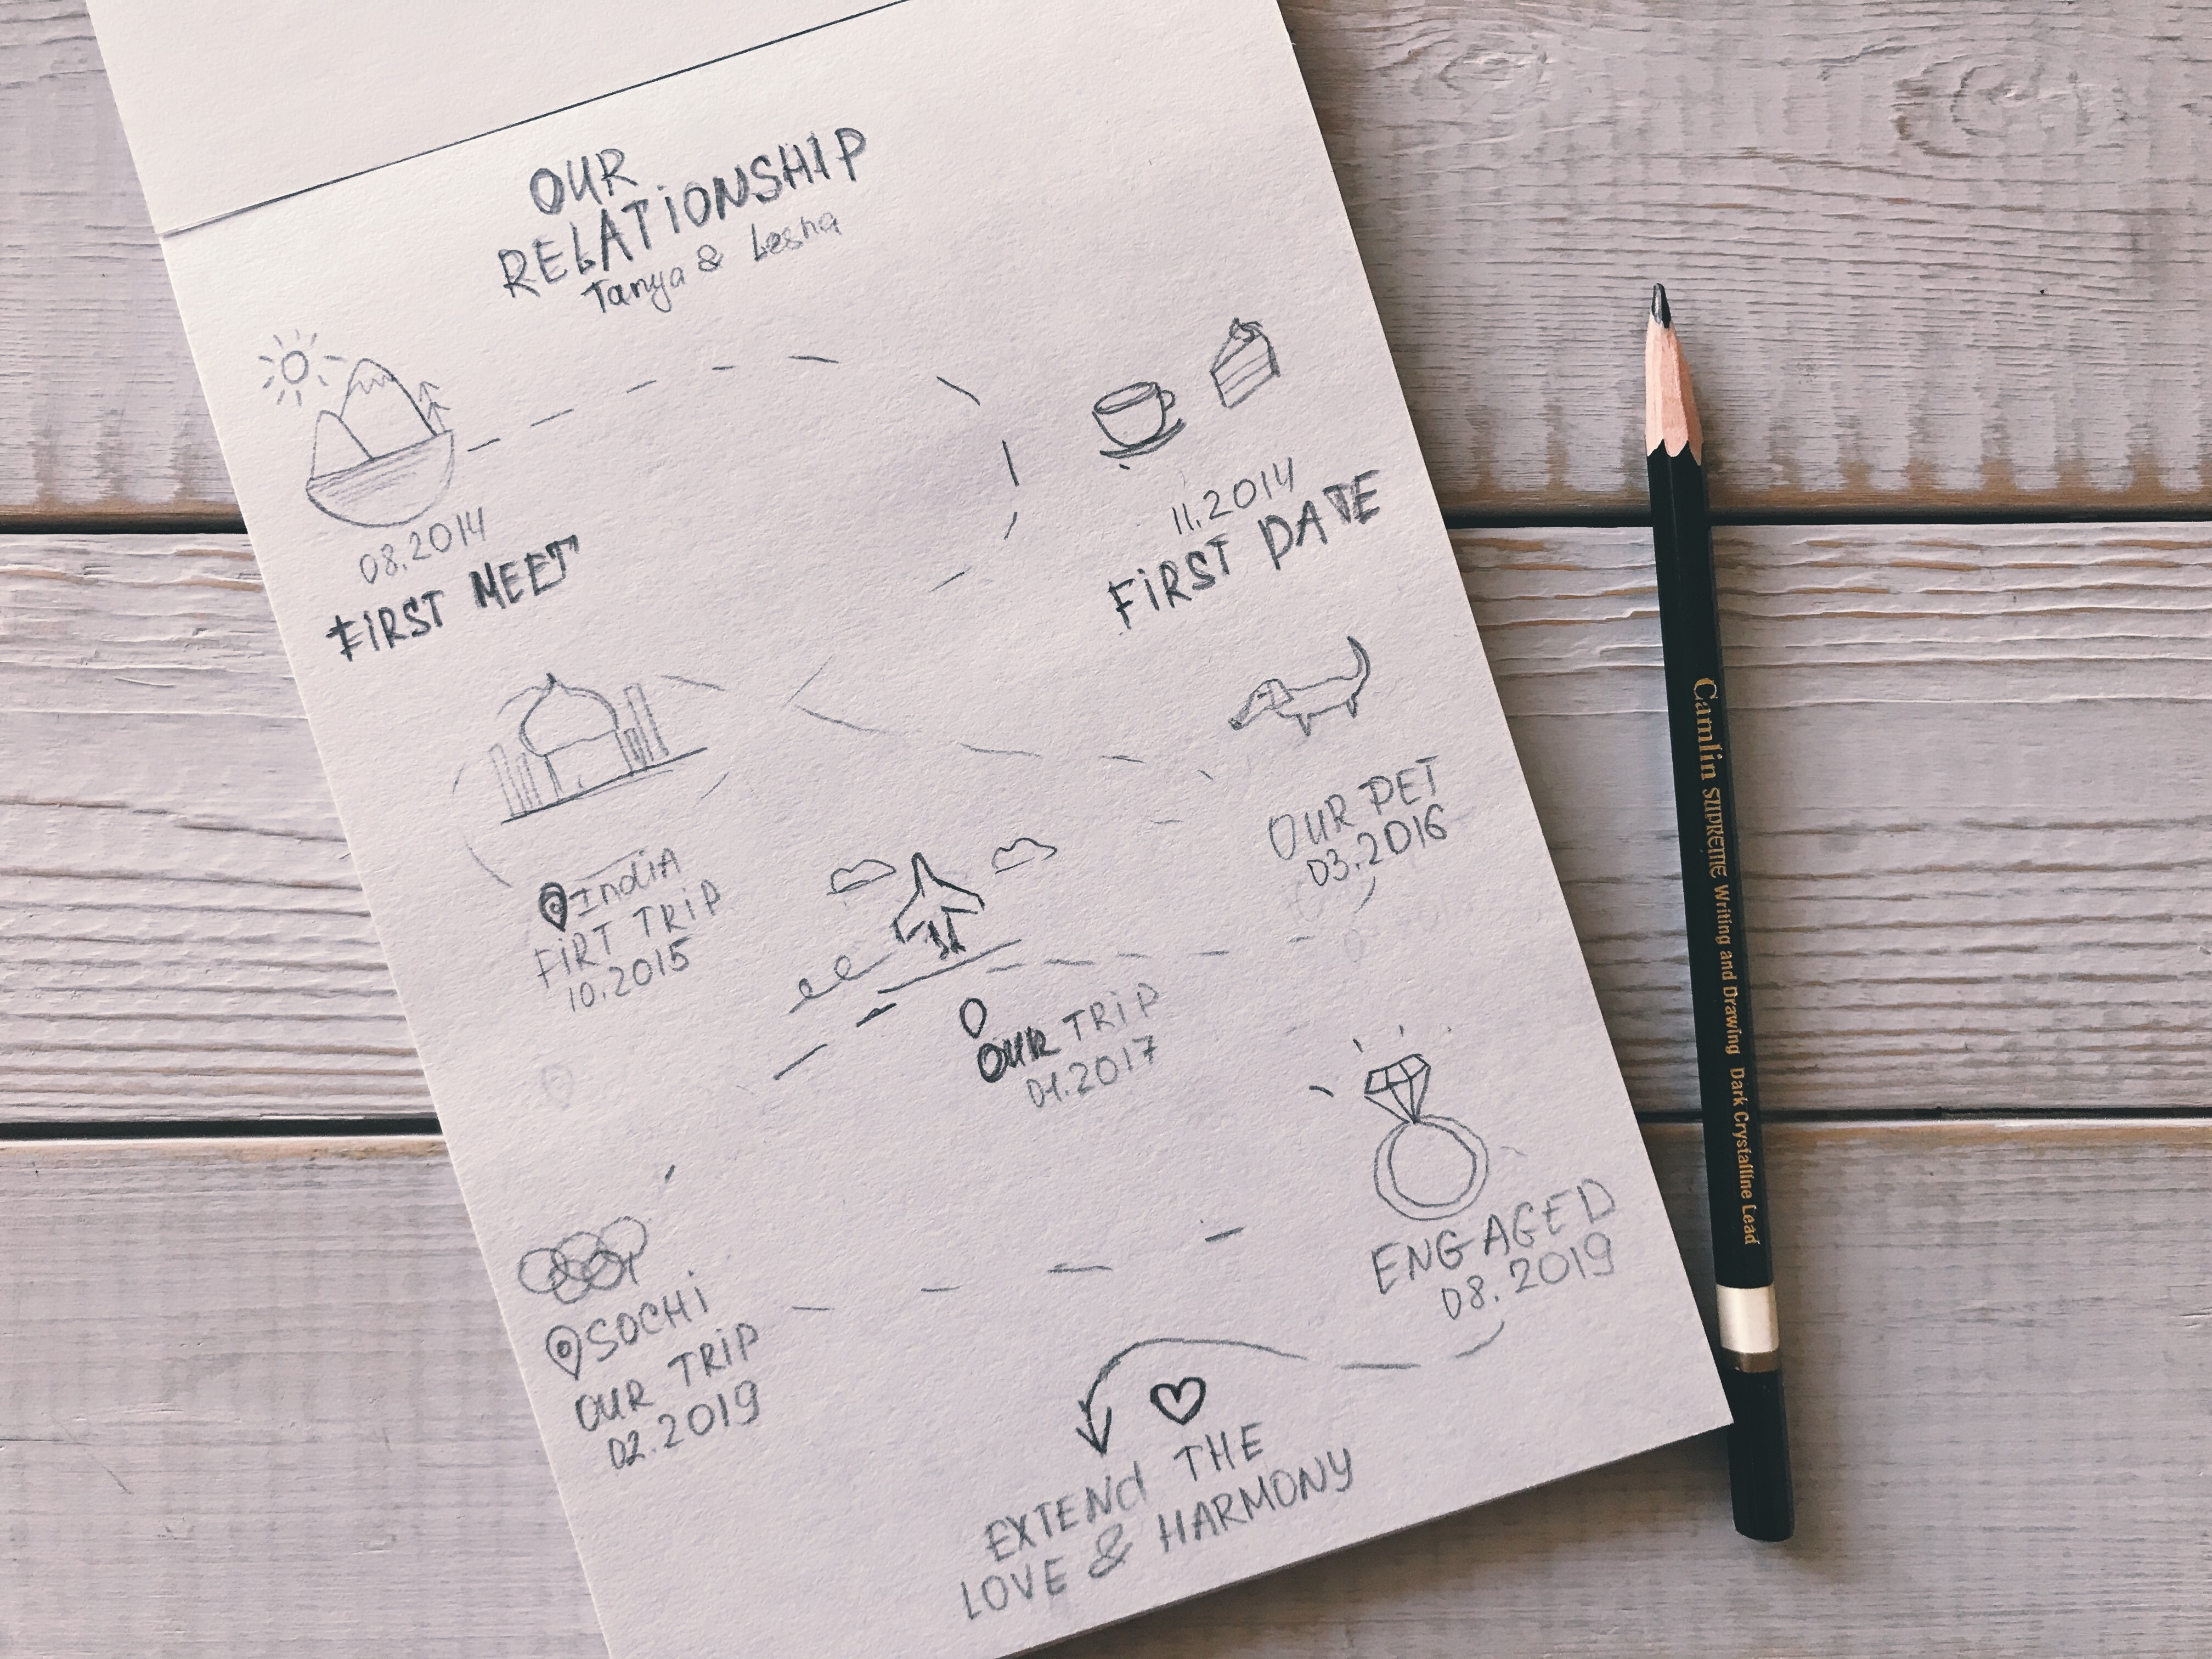 OUR
RELATIONSHIP
Tanya & Lesha
08.2014
FIRST MEET
11.2014
FIRST DATE
INdiA
FIRT TRIP
10.2015
OUR PET
03.2016
OUR TRIP
04.2017
SOCHI
OUR TRIP
02.2019
ENGAGED
08.2019
EXTENd THE
LOVE & HARMONY
Camlin SUPREME Writing and Drawing Dark Crystalline Lead